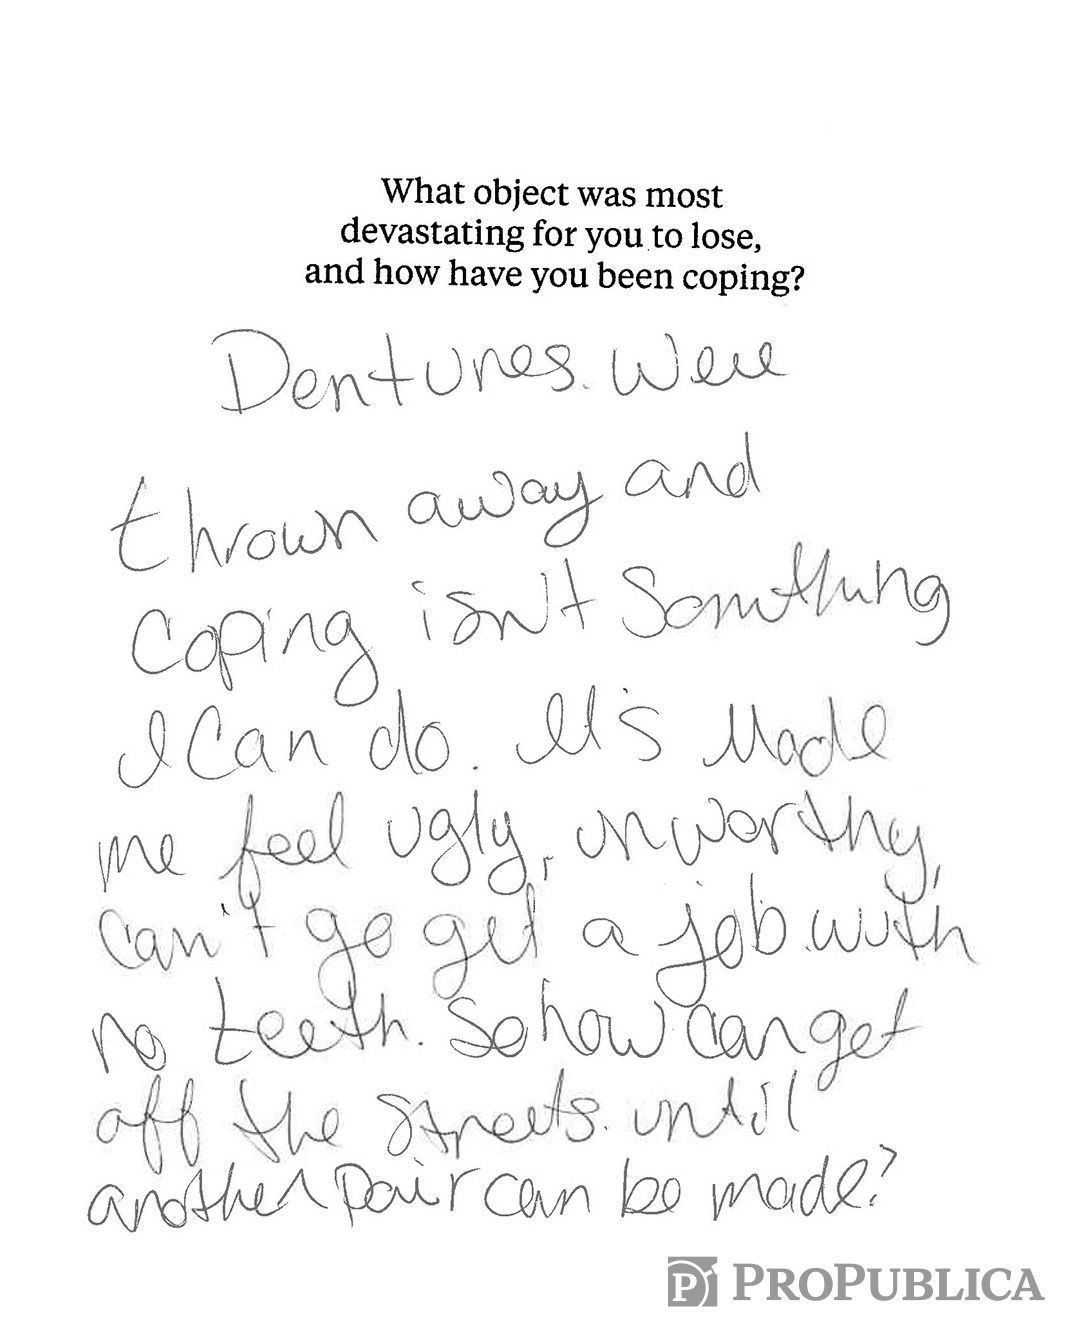 What object was most
devastating for you to lose,
and how have you been coping?
Dentures. Were
thrown away and
Coping isn't Somthing
I Can do. It's Made
me feel ugly, unworthy,
can't go get a job with
no teeth. So how can get
off the streets. until
another pair can be made?
PROPUBLICA